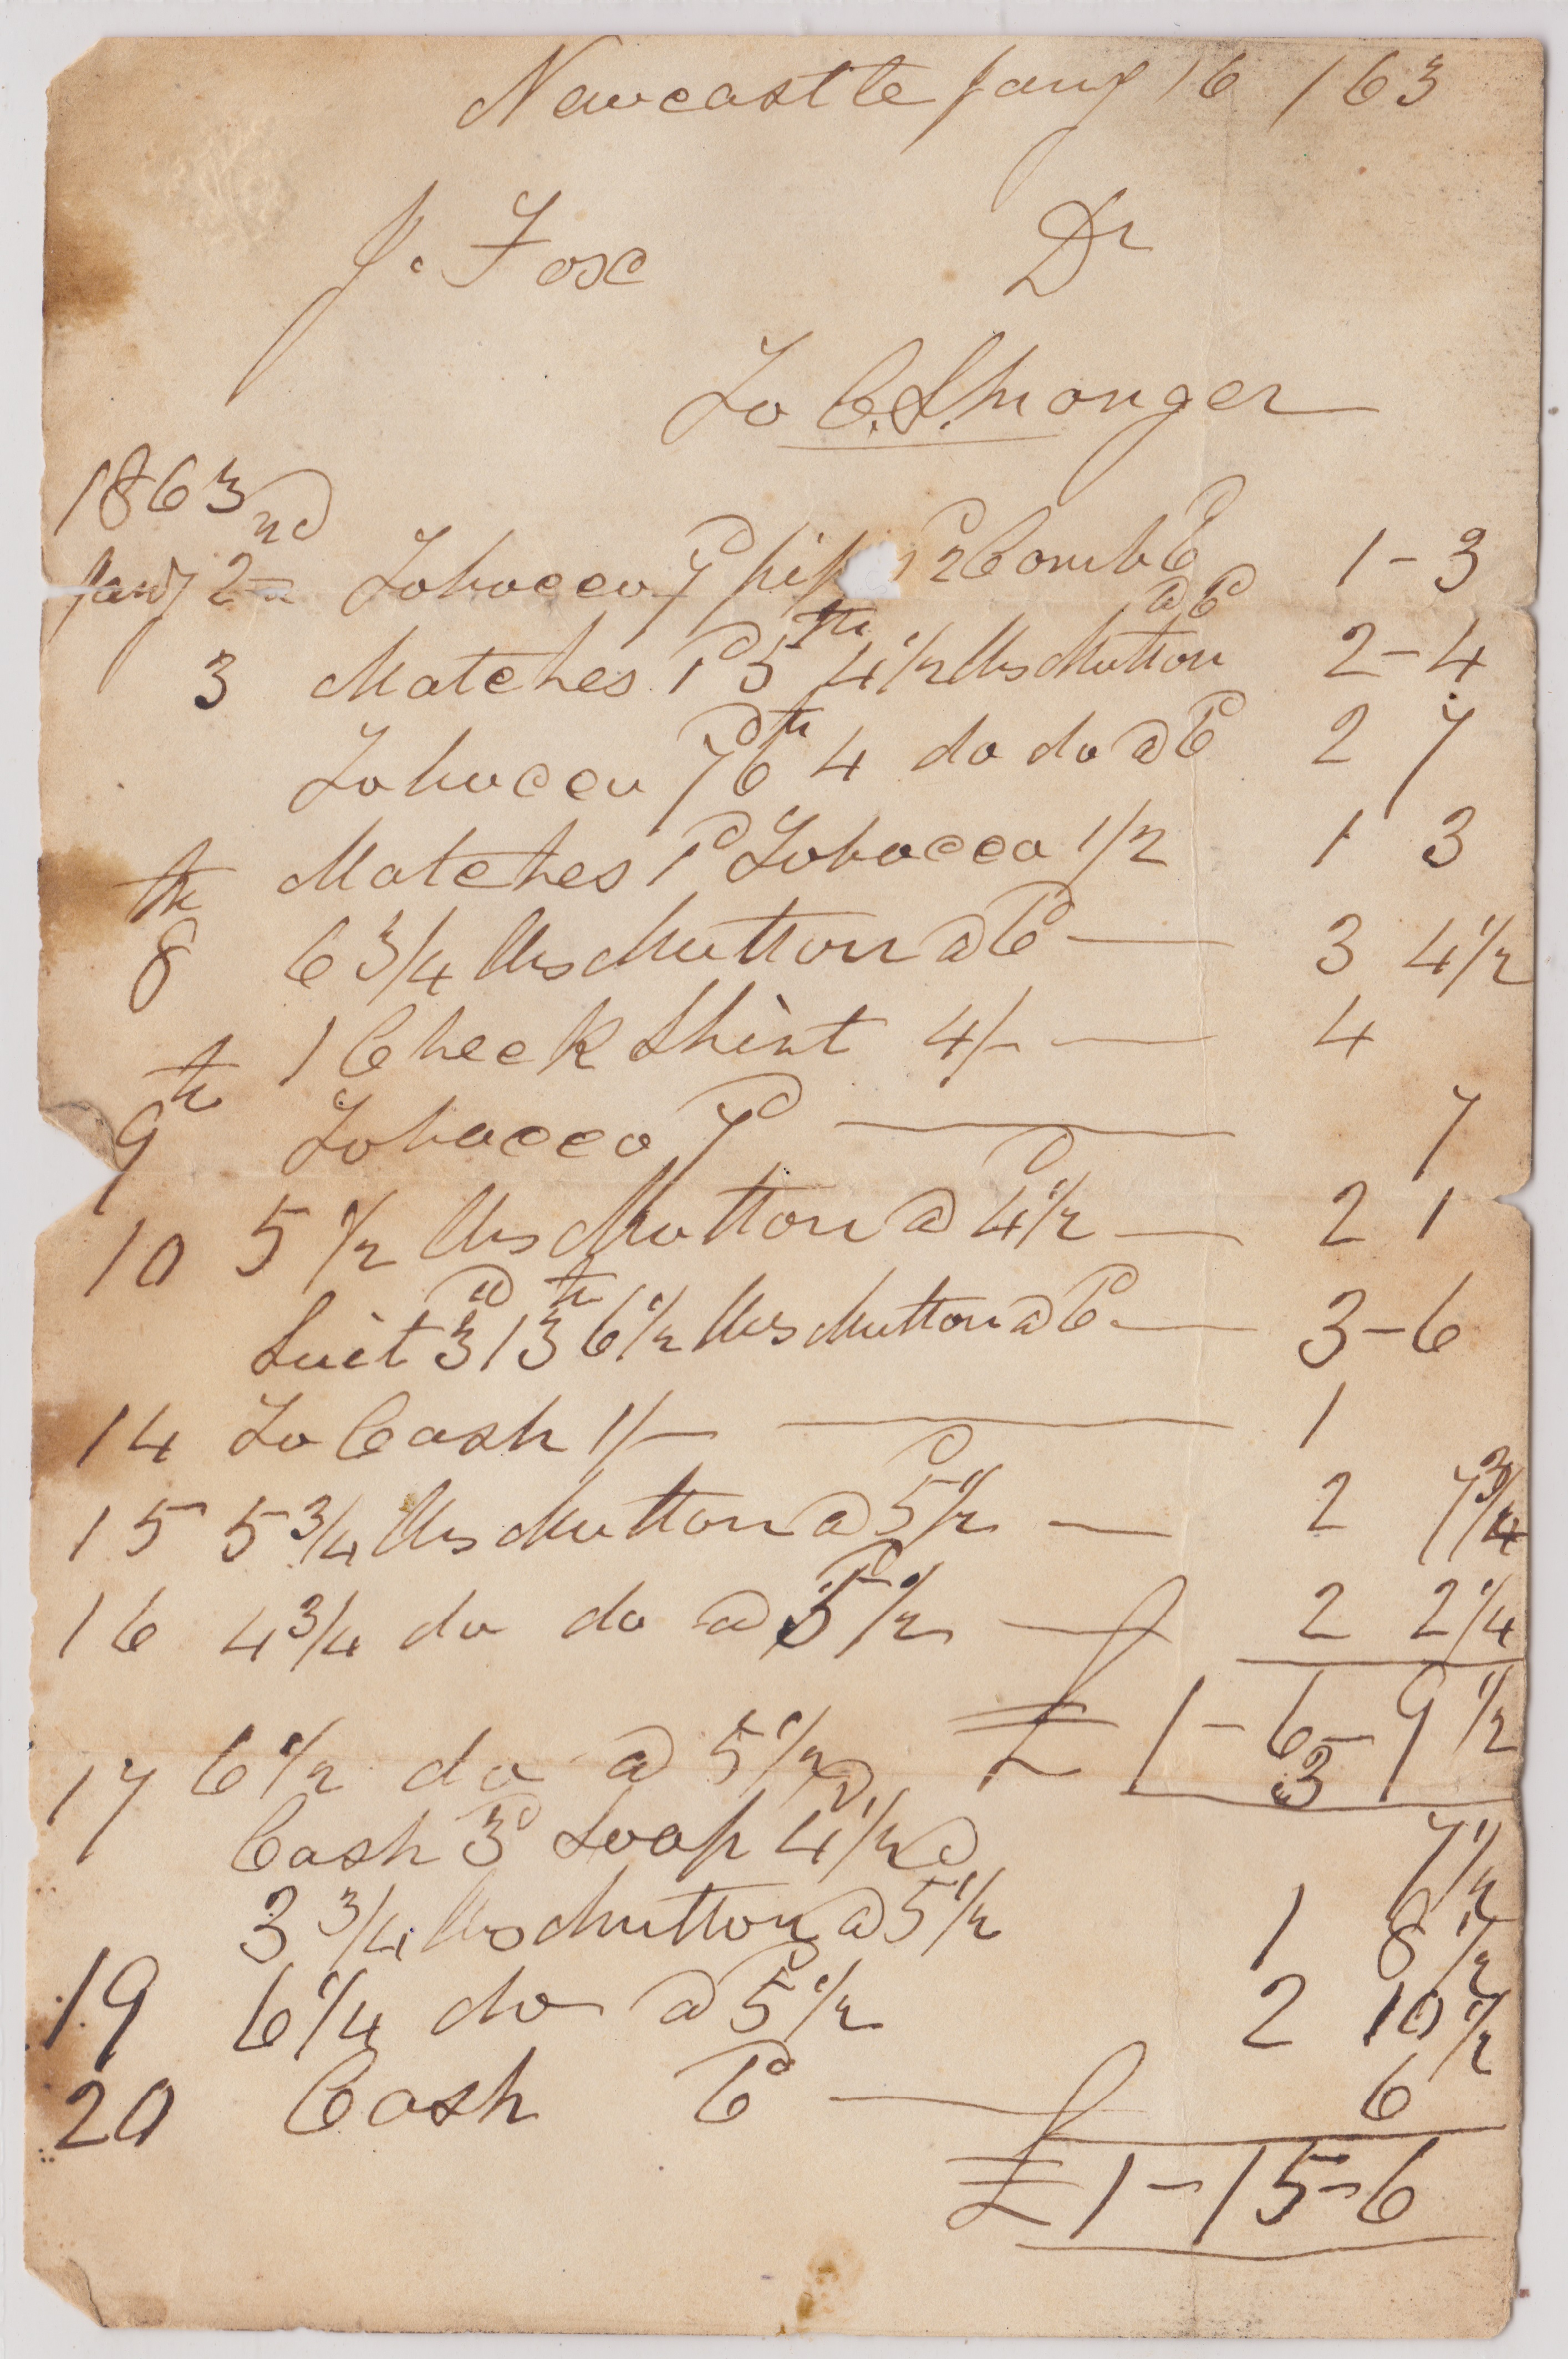 Newcastle Jany 16 / 63
J. Fox Dr
To C. S. Monger
1863
Jany 2nd Tobacco 7d pip 2d Comb 6d 1-3
3 Matches 1d 5th 4 1/2 lbs Mutton @ 6d 2-4
Tobacco 7d 6th 4 do do @ 6d 2 7
Matches 1d Tobacco 1/2 1 3
8th 6 3/4 lbs Mutton @ 6d — 3 4 1/2
1 Check Shirt 4/- — 4
9th Tobacco 7d — 7
10 5 1/2 lbs Mutton @ 4 1/2d — 2 1
Suit 3d 13th 6 1/2 lbs Mutton @ 6d — 3-6
14 To Cash 1/- — 1
15 5 3/4 lbs Mutton @ 5 1/2d — 2 7 3/4
16 4 3/4 do do @ 5 1/2d — 2 2 1/4
£ 1-6-9 1/2
17 6 1/2 do @ 5 1/2d 3
Cash 3d Soap 4 1/2d 7 1/2
3 3/4 lbs Mutton @ 5 1/2d 1 8 1/2
19 6 1/4 do @ 5 1/2d 2 10 1/2
20 Cash 6d — 6
£ 1-15-6